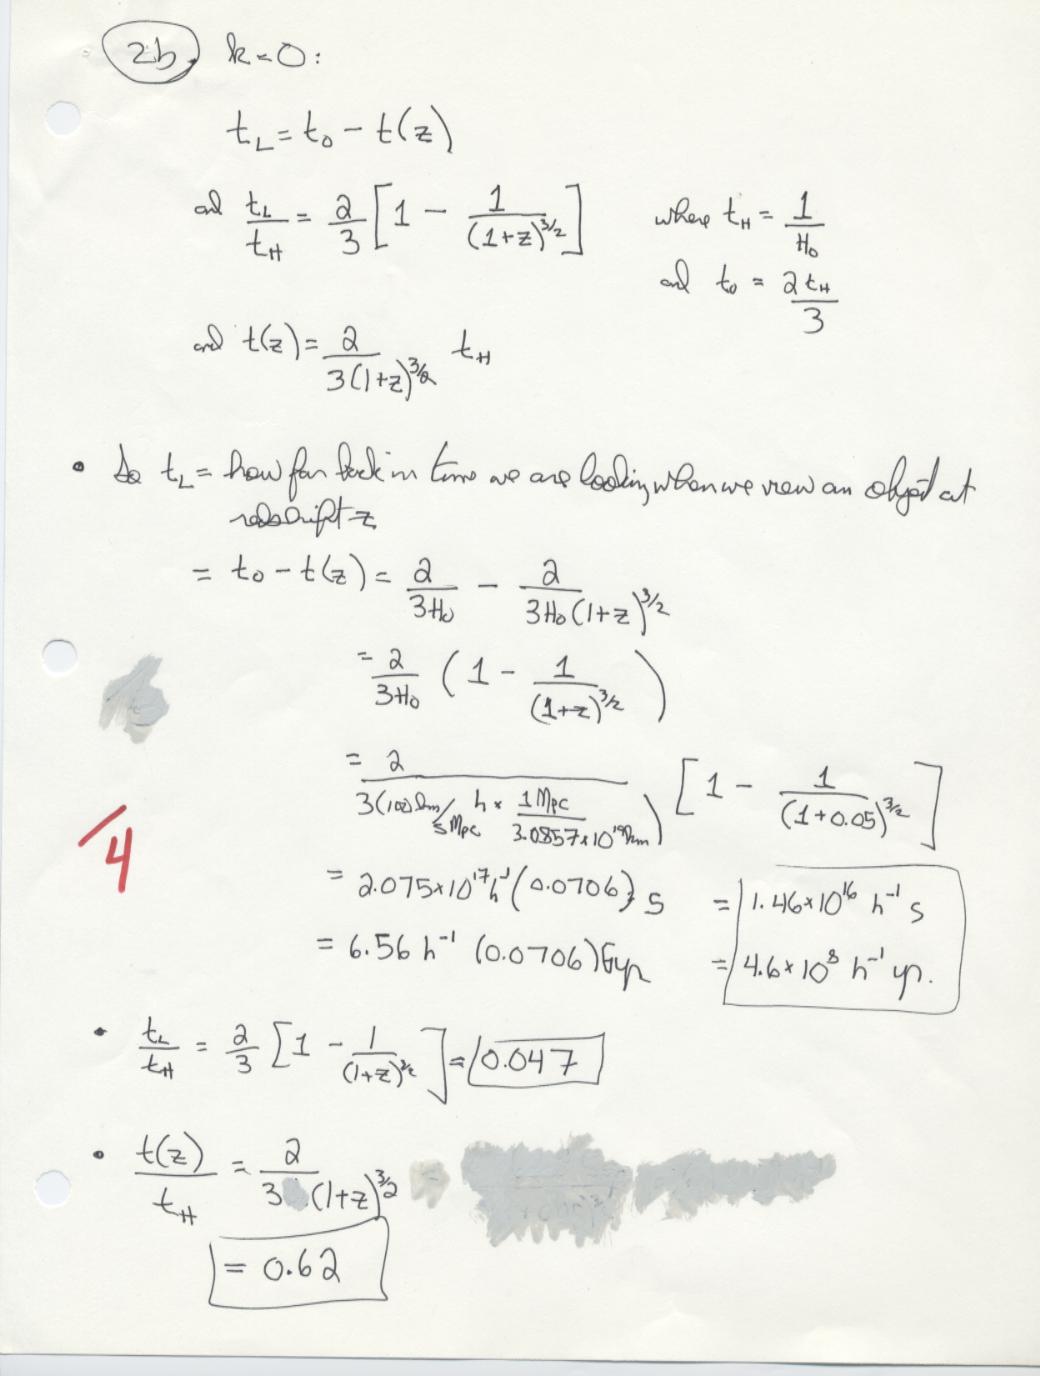 2b. k=0:
t_L = t_0 - t(z)
and t_L/t_H = 2/3 [1 - 1/(1+z)^3/2] where t_H = 1/H_0
and t_0 = 2t_H/3
and t(z) = 2/3(1+z)^3/2 t_H
• So t_L = how far back in time we are looking when we view an object at
redshift z
= t_0 - t(z) = 2/3H_0 - 2/3H_0(1+z)^3/2
= 2/3H_0 (1 - 1/(1+z)^3/2)
= 2/3(100 km/s Mpc h × 1 Mpc/3.0857×10^19 km) [1 - 1/(1+0.05)^3/2]
/4
= 2.075×10^17 h^-1 (0.0706) s = 1.46×10^16 h^-1 s
= 6.56 h^-1 (0.0706) Gyr = 4.6×10^8 h^-1 yr.
• t_L/t_H = 2/3 [1 - 1/(1+z)^3/2] = 0.047
• t(z)/t_H = 2/3(1+z)^3/2
= 0.62